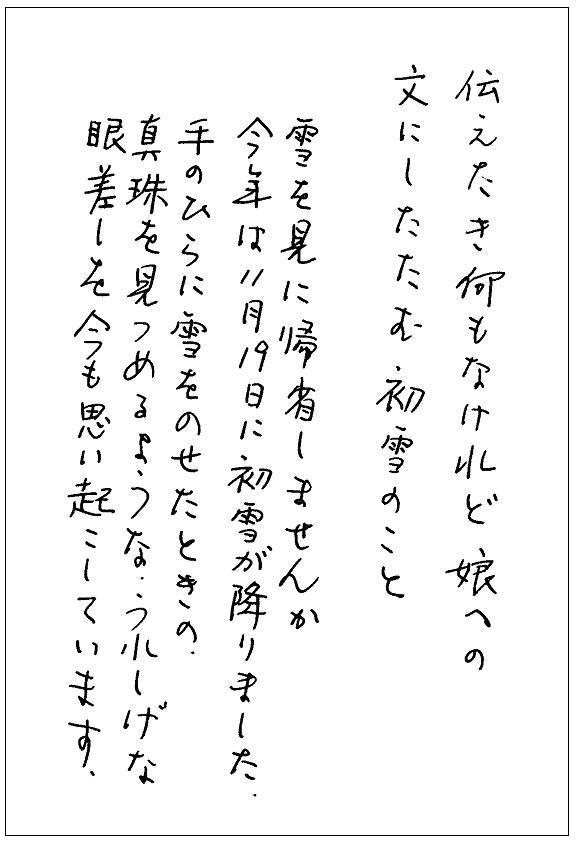 伝えたき何もなけれど 娘への
文にしたたむ 初雪のこと
雪を見に帰省しませんか
今年は11月19日に初雪が降りました.
手のひらに雪をのせたときの.
真珠を見つめるような.うれしげな
眼差しを今も思い起こしています.